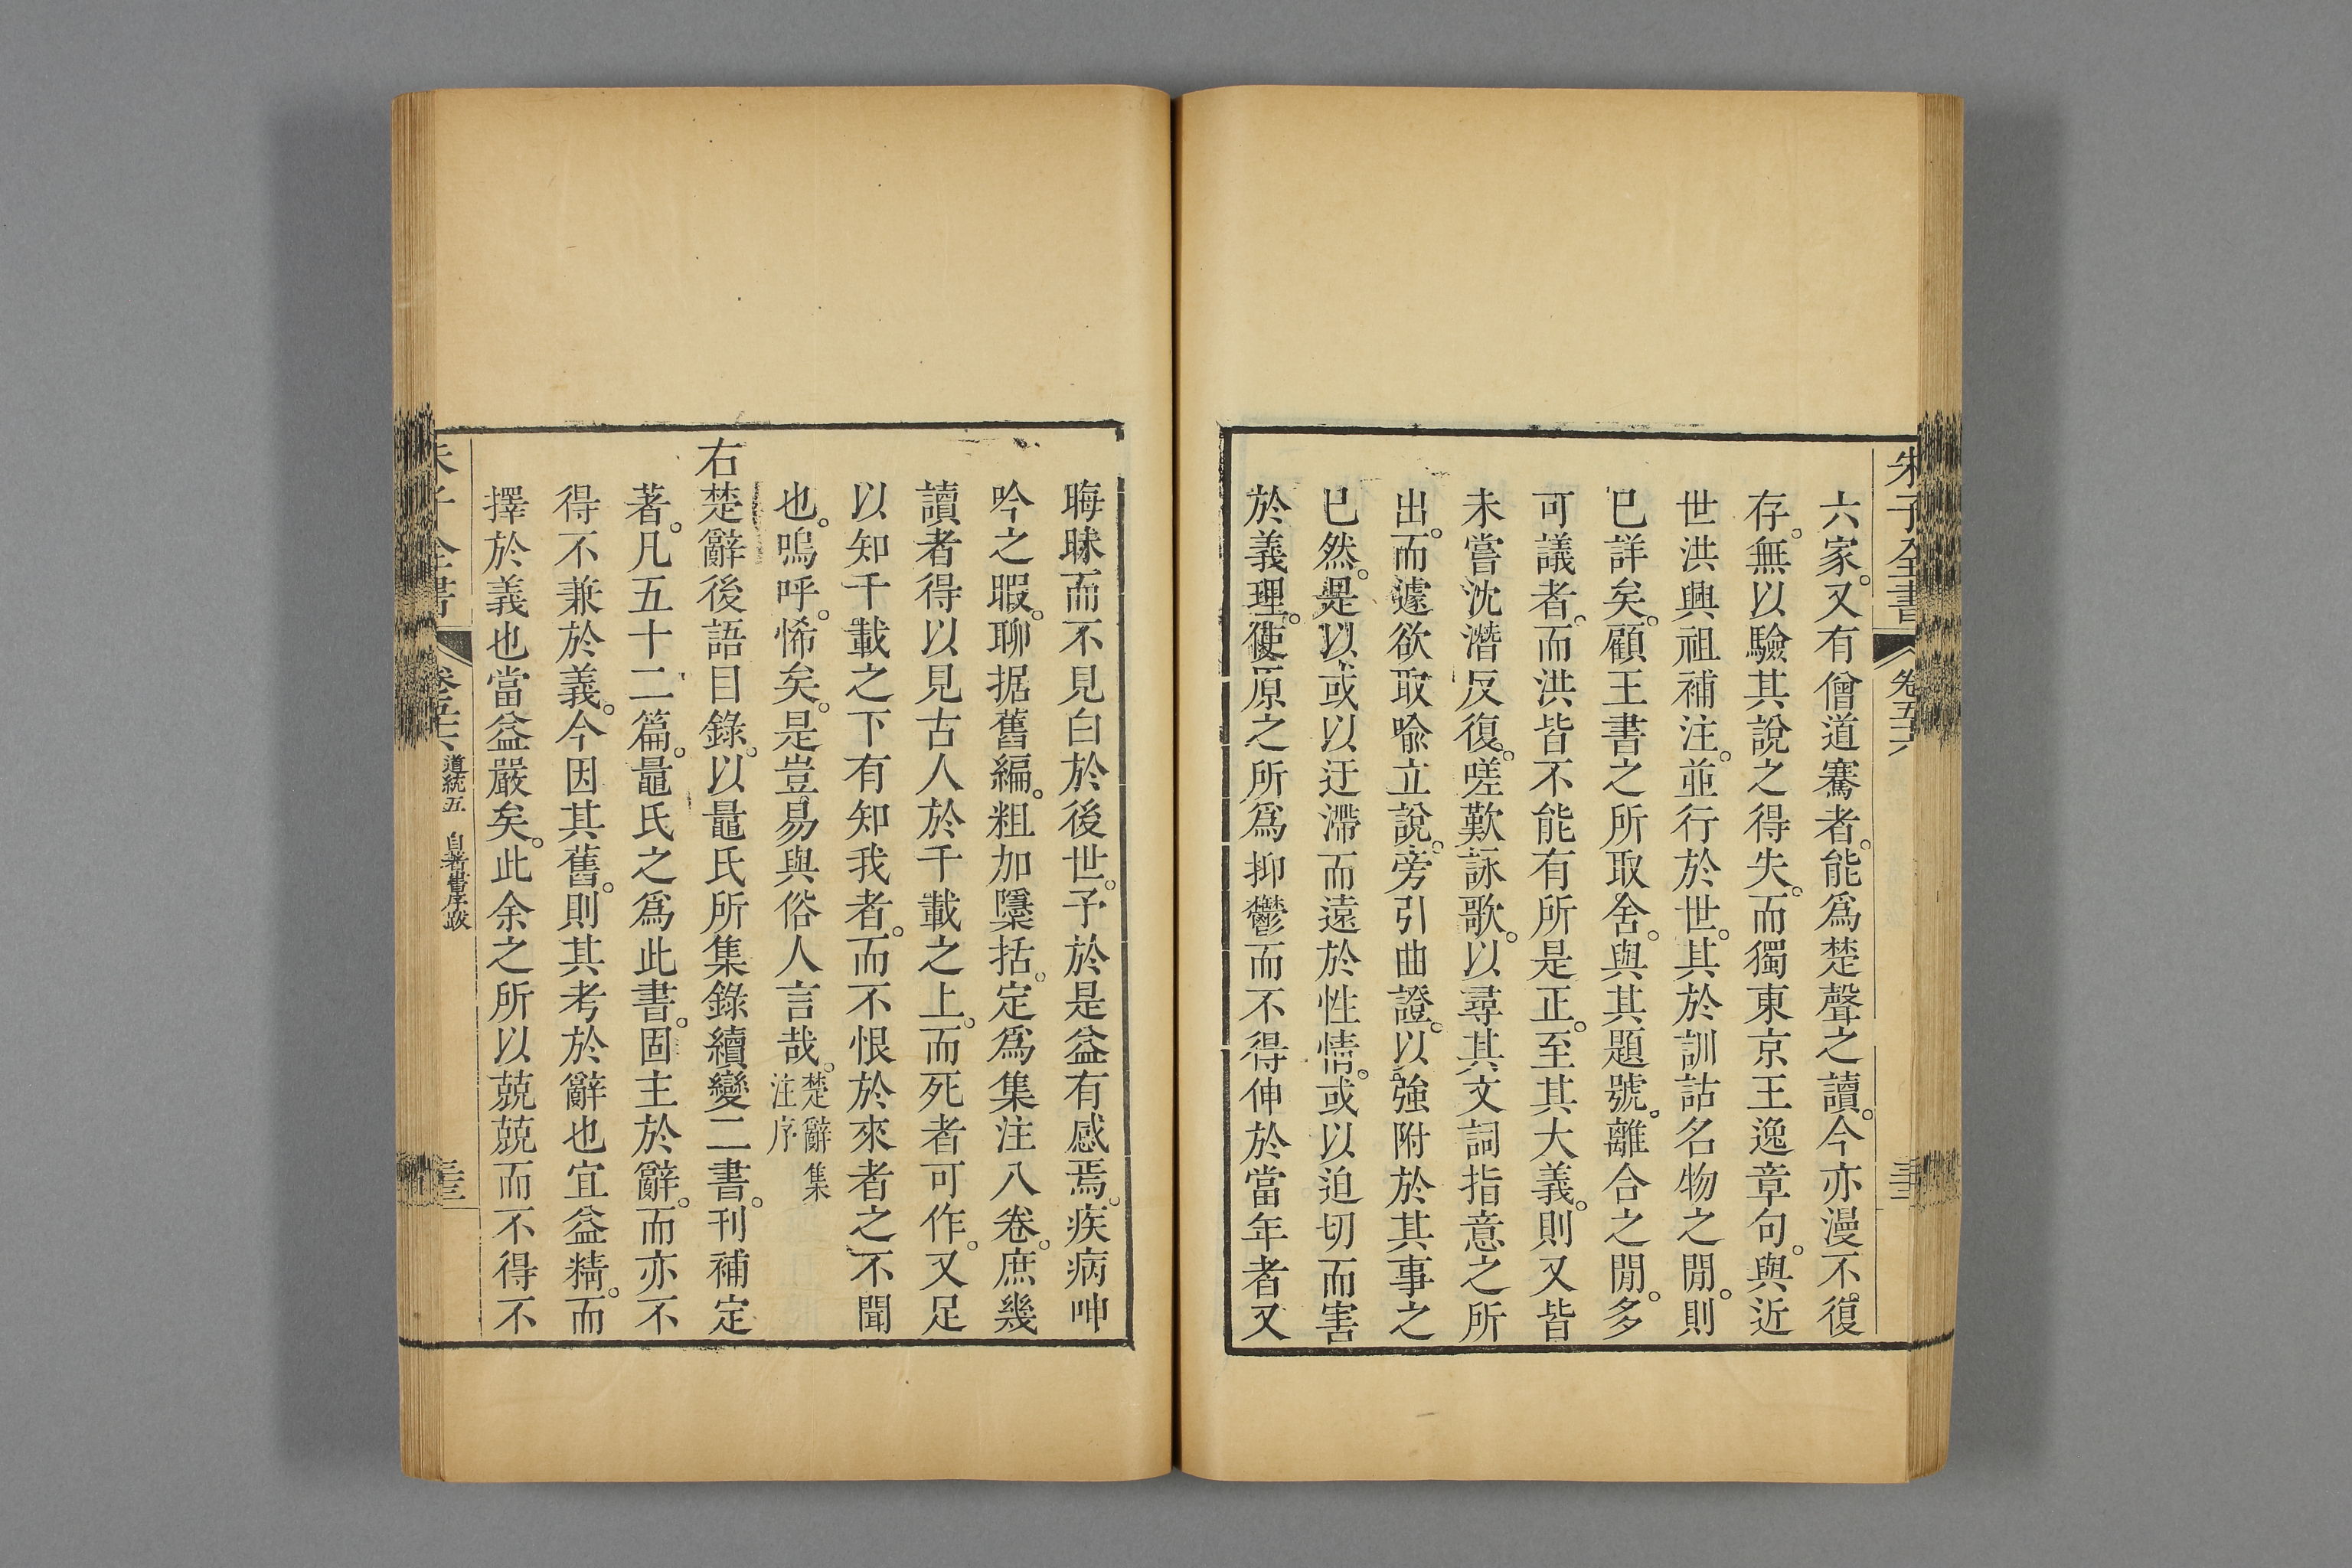 朱子全書 卷五六
六家。又有僧道騫者。能爲楚聲之讀。今亦漫不復
存。無以驗其說之得失。而獨東京王逸章句。與近
世洪興祖補注。並行於世。其於訓詁名物之閒。則
已詳矣。顧王書之所取舍。與其題號。離合之閒。多
可議者。而洪皆不能有所是正。至其大義。則又皆
未嘗沈潛反復。嗟歎詠歌。以尋其文詞指意之所
出。而遽欲取喻立說。旁引曲證。以強附於其事之
已然。是以或以迂滯而遠於性情。或以迫切而害
於義理。使原之所爲抑鬱而不得伸於當年者又
晦昧而不見白於後世。予於是益有感焉。疾病呻
吟之暇。聊据舊編。粗加檃括。定爲集注八卷。庶幾
讀者得以見古人於千載之上。而死者可作。又足
以知千載之下有知我者。而不恨於來者之不聞
也。嗚呼。悕矣。是豈易與俗人言哉。楚辭集
注序
右楚辭後語目錄。以鼂氏所集錄續變二書。刊補定
著。凡五十二篇。鼂氏之爲此書。固主於辭。而亦不
得不兼於義。今因其舊。則其考於辭也宜益精。而
擇於義也當益嚴矣。此余之所以兢兢而不得不
朱子全書 卷五六 道統五 自著書序跋